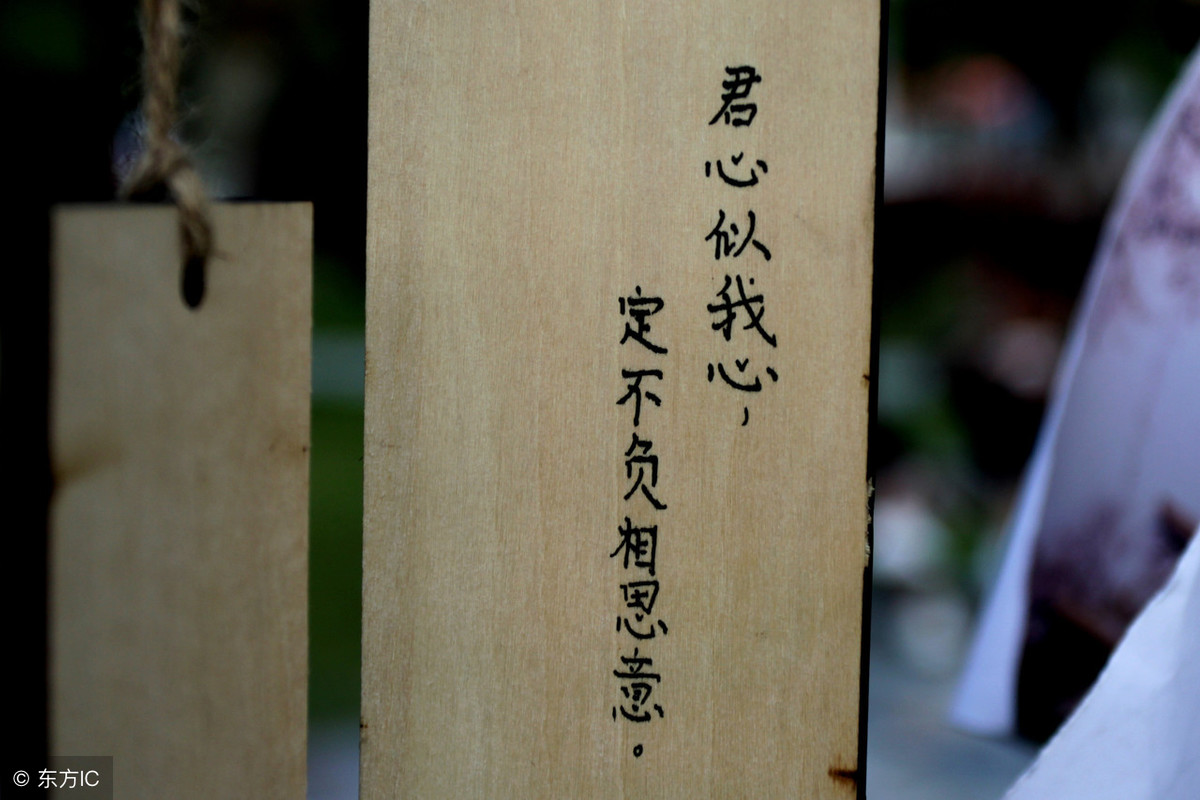 君心似我心，
定不负相思意。
© 东方IC